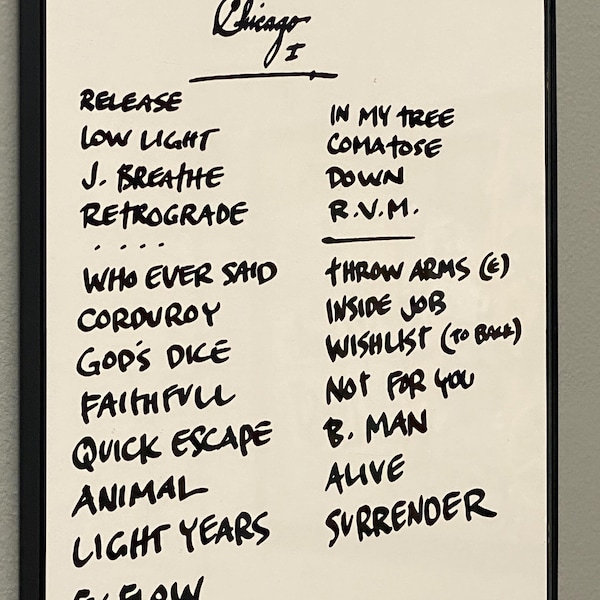 Chicago
I
RELEASE
LOW LIGHT
J. BREATHE
RETROGRADE
. . . .
WHO EVER SAID
CORDUROY
GOD'S DICE
FAITHFULL
QUICK ESCAPE
ANIMAL
LIGHT YEARS
FLOW
IN MY TREE
COMATOSE
DOWN
R.V.M.
THROW ARMS (E)
INSIDE JOB
WISHLIST (TO BACK)
NOT FOR YOU
B. MAN
ALIVE
SURRENDER